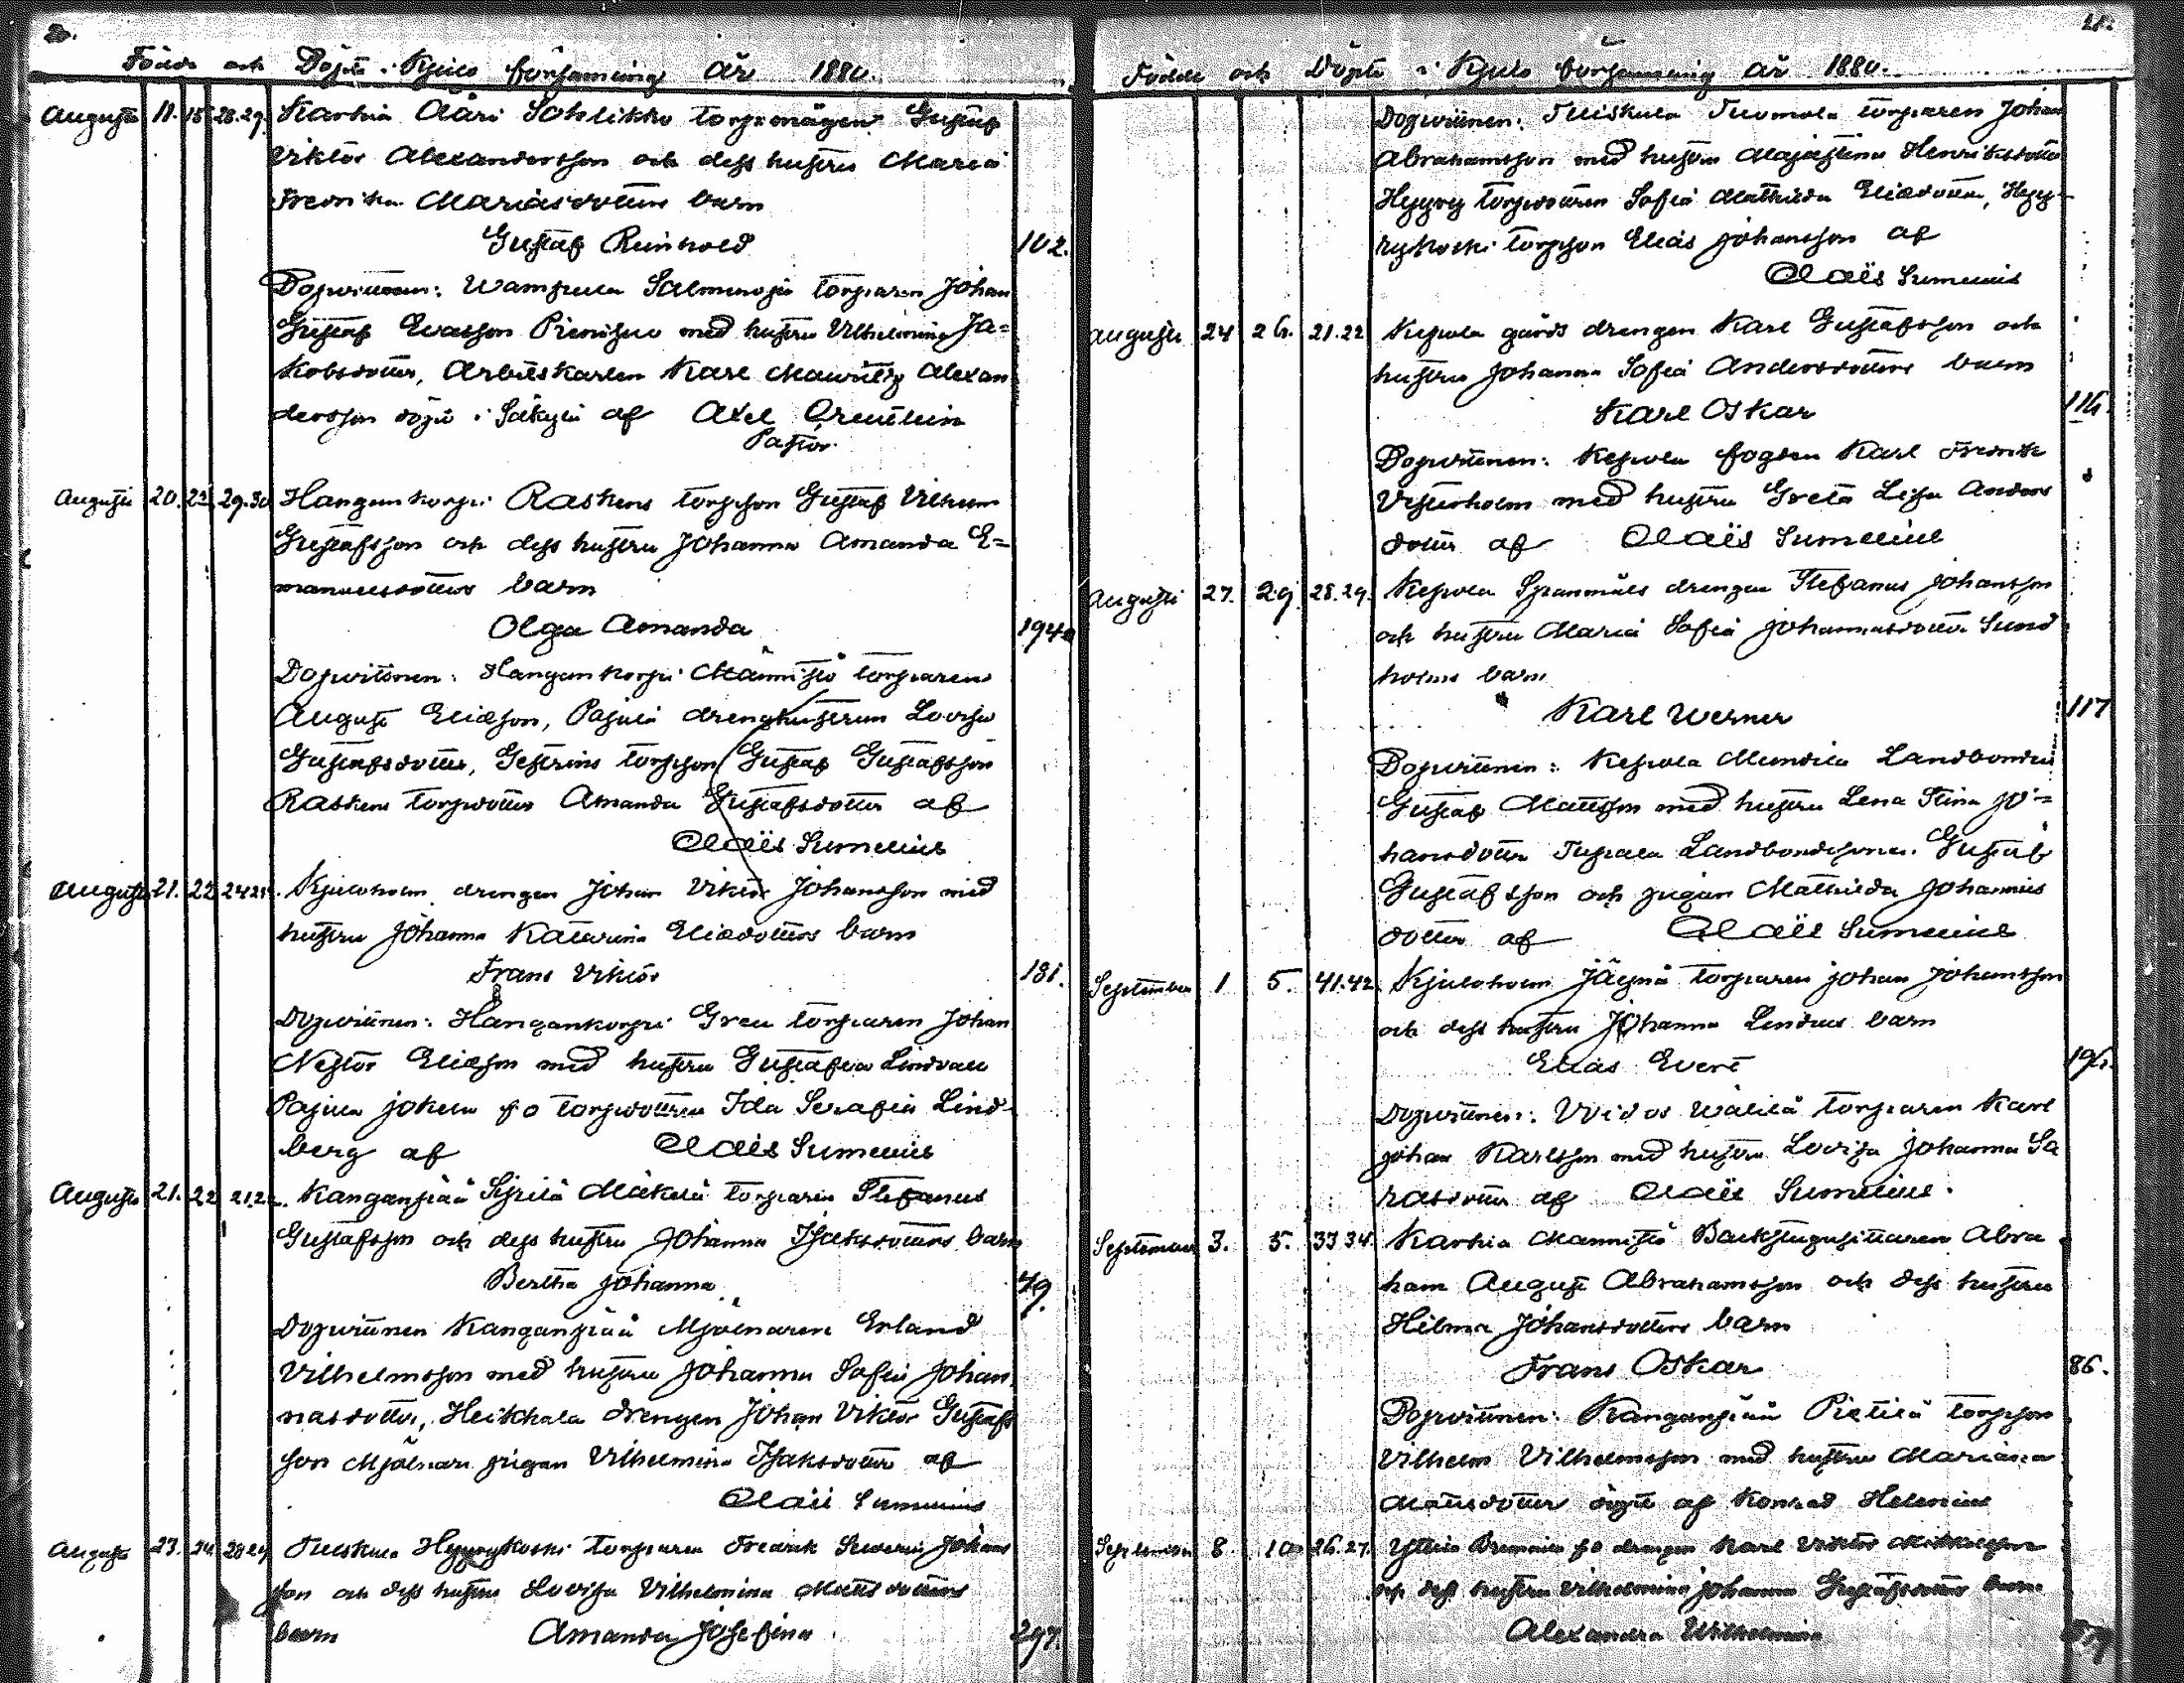 Födde och Döpte i Kjulo församling år 1880.
Augusti 11. 15 28.29. Karhia Ääri Sohlikko torpmågen Gustaf
Viktor Alexandersson och dess hustru Maria
Fredrika Mariasdotters barn
Gustaf Reinhold 102.
Dopvittnen: Wampula Salmenoja torparen Johan
Gustaf Evasson med hustru Vilhelmina Ja=
kobsdotter, Arbetskarlen Karl Mauritz Alexan
dersson döpt i Säkylä af Axel
Pastor.
Augusti 20. 22 29.30 Hangankorpi Raskens torpson Gustaf Vilhem
Gustafsson och dess hustru Johanna Amanda E=
manuelsdotters barn
Olga Amanda 194
Dopvittnen: Hangankorpi Männistö torparen
August Eliasson, Pajula drenghustrun Lovisa
Gustafsdotter, torpson Gustaf Gustafsson
Raskens torpdotter Amanda Gustafsdotter af
Claës Sumelius
Augusti 21. 22 24.25. Kjuloholm drengen Johan Viktor Johansson med
hustru Johanna Katarina Eliædotters barn
Frans Viktor 181.
Dopvittnen: Hangankorpi torparen Johan
Nestor Eliæson med hustru Gustafva Lindvall
Pajula f o torpdottren Ida Serafia Lind
berg af Claës Sumelius
Augusti 21. 22 21.22. Kanganpää Sjrilä Mäkelä torparen Stefanus
Gustafsson och dess hustru Johanna Isaksdotters barn
Bertha Johanna 49.
Dopvittnen Kanganpää Mjölnaren Erland
Vilhelmsson med hustru Johanna Sofia Johan
nasdotter, Heikkala drengen Johan Viktor Gustafs
son Mjölnare pigan Vilhelmina Isaksdotter af
Claës Sumelius
Augusti 23. 24 28.29 Tuiskula Hyyrykoski torparen Fredrik Severin Johans
son och dess hustru Lovisa Vilhelmina Matts dotters
barn Amanda Josefina 297.
Födde och Döpte i Kjulo församling år 1880.
Dopvittnen: Tuiskula Tuomola torparen Johan
Abrahamsson med hustru Majastina Henriksdotter
Hyyry torpdottren Sofia Mathilda Eliædotter, Hyy-
rykoski torpson Elias Johansson af
Claës Sumelius
Augusti 24 26. 21.22 Kepola gårds drengen Karl Gustafsson och
hustru Johanna Sofia Andersdotters barn
Karl Oskar 116.
Dopvittnen: Kepola fogden Karl Fredrik
Vesterholm med hustru Greta Lisa Anders
dotter af Claës Sumelius
Augusti 27. 29. 28.29. Kepola Spannmåls drengen Stefanus Johansson
och hustru Maria Sofia Johannasdotter Sund
holms barn
Karl Werner 117
Dopvittnen: Kepola Mundila Landbonden
Gustaf Mattsson med hustru Lena Stina Jo=
hansdotter Landbondsonen Gustaf
Gustafsson och pigan Mathilda Johannis
dotter af Claës Sumelius
September 1 5. 41.42. Kjuloholm torparen Johan Johansson
och dess hustru Johanna Lindus barn
Elias Evert
Dopvittnen: torparen Karl
Johan Karlsson med hustru Lovisa Johanna Sa
rasdotter af Claës Sumelius.
September 3. 5. 33.34 Karhia Männistö Backstugusittaren Abra
ham August Abrahamsson och dess hustru
Hilma Johansdotters barn
Frans Oskar 86.
Dopvittnen: Kanganpää Pietilä torpson
Vilhelm Vilhelmsson med hustru Mariana
Mattsdotter döpt af Konrad Helenius
September 8. 10 26.27. f o drengen Karl Viktor
och dess hustru Vilhelmina Johanna Gustafsdotters barn
Alexandra Vilhelmina